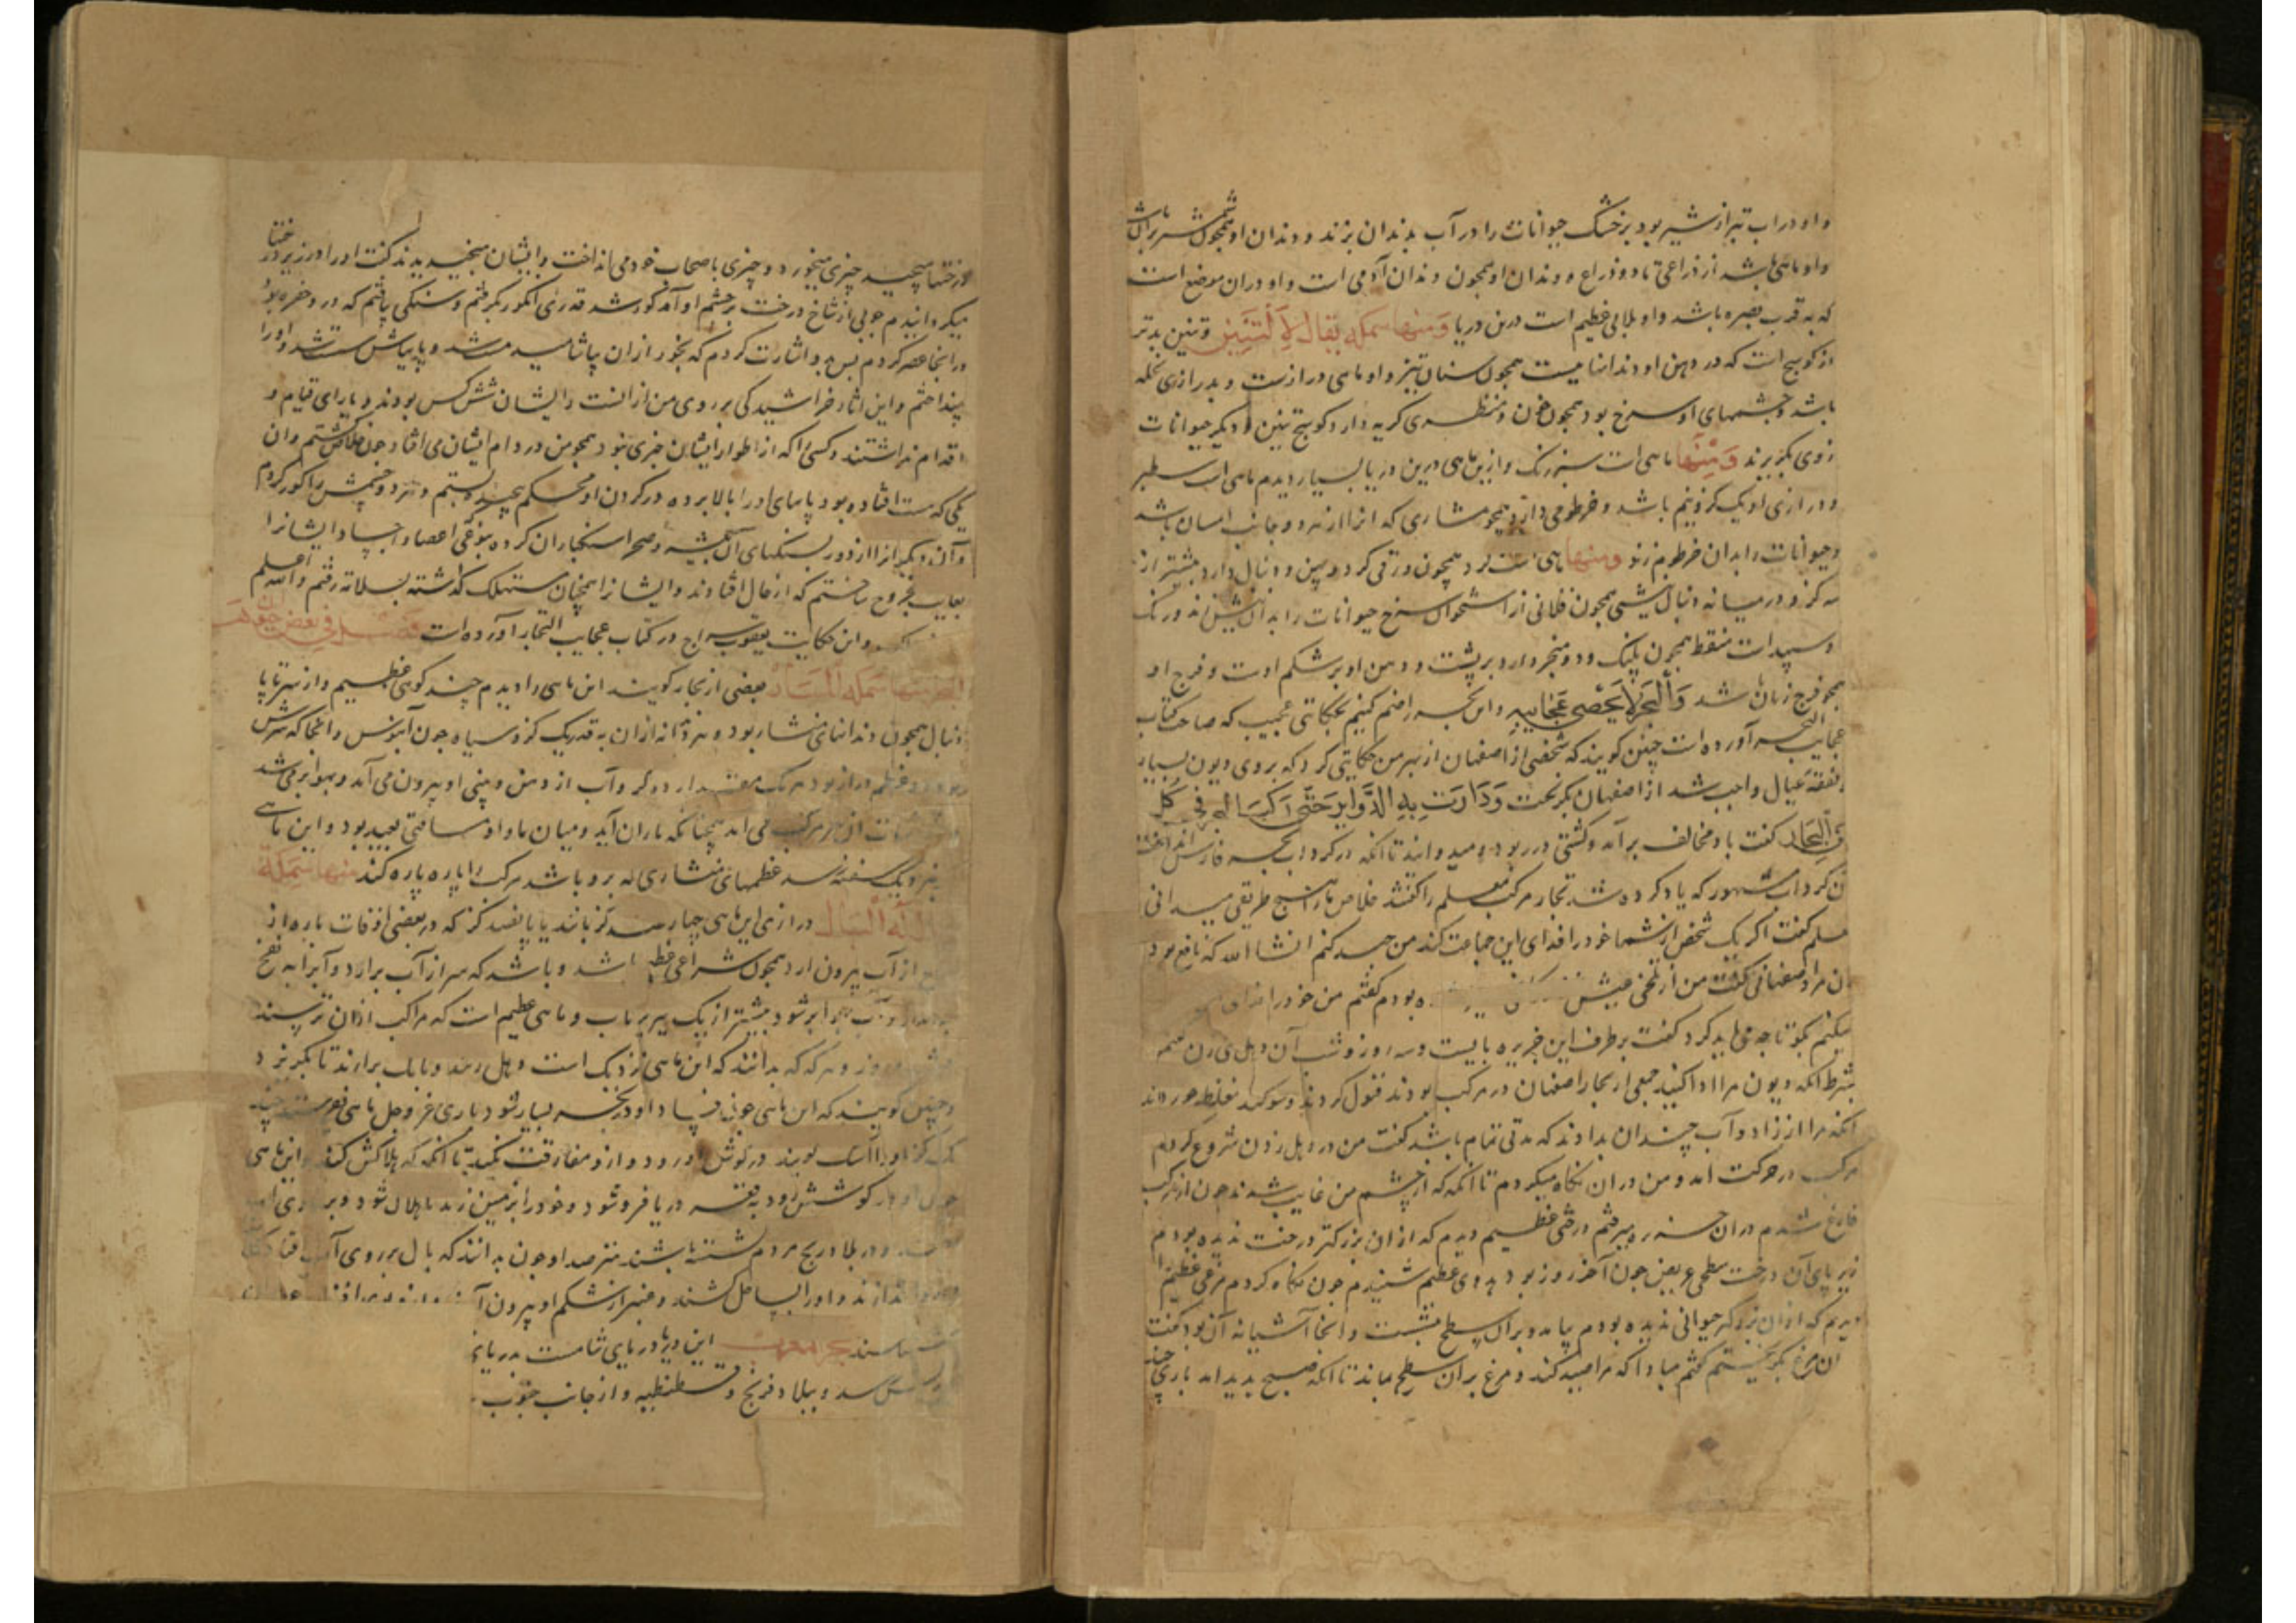 و او در اب تیر از شیر بود بر خشک حیوانات را در آب بدندان بزند و دندان او همچون شمشیر بران باشد
و او ماهی باشد از ذراعی تا دو ذراع و دندان او همچون دندان آدمی است و او در آن موضع است
که به قرب بصره باشد و او بلایی عظیم است درین دریا ومنها سمکه یقال له التنین و تنین بدتر
از کوسج است که در دهن او دندانها است همچون سنان تیز و او ماهی درازست و بدرازی نخله
باشد و چشمهای او سرخ بود همچون خون و منظری کریه دارد کوسج تنین دیگر حیوانات
ازوی بگریزند ومنها ماهی است سبز رنگ و ازین ماهی درین دریا بسیار دیدم ماهی است سطبر
و درازی او یک گز و نیم باشد و خرطومی دارد همچو منشاری که انرا از هر دو جانب اسنان باشد
و حیوانات را بدان خرطوم زند ومنها ماهی است گرد همچون ورقی گرد و پهن و دنبال دارد بیشتر از
سه گز و در میانه دنبال نیشی همچون قلابی از استخوان سرخ حیوانات را بدان نیش زند و رنگ
و سپید است منقط همچون پلنگ و دو منخر دارد بر پشت و دهن او بر شکم اوست و فرج او
همچو فرج زنان باشد والبحر لا یحصی عجایبه و این بحر را ختم کنیم بحکایتی عجیب که صاحب کتاب
عجایب البحر آورده است چنین گویند که شخصی از اصفهان از بهر من حکایتی کرد که بر وی دیون بسیار
و نفقه عیال واجب شد از اصفهان بگریخت ودارت به الدوایر حتی رکب البحر فی کل
من التجار گفت باد مخالف بر آمد و کشتی در ربود و میدواند تا انکه در گرداب بحر فارس انداخت
آن گرداب مشهور که یاد کرده شد تجار مرکب معلم را گفتند خلاص ما را هیچ طریقی میدانی
معلم گفت اگر یک شخص از شما خود را فدای این جماعت کند من جهد کنم انشا الله که نافع بود
ان مرد اصفهانی گفت من از تلخی عیش بوده بودم گفتم من خود را فدای
میکنم بگو تا چه می باید کرد گفت بر طرف این جزیره بایست و سه روز و شب آن دهل می زن گفتم
بشرط انکه دیون مرا ادا کنید جمعی از تجار اصفهان در مرکب بودند قبول کردند و سوگند مغلظ خوردند
انکه مرا از زاد و آب چندان بدادند که مدتی تمام باشد گفت من در دهل زدن شروع کردم
مرکب در حرکت امد و من در ان نگاه میکردم تا انکه که از چشم من غایب شدند چون از مرکب
فارغ شدم در ان جزیره میرفتم درختی عظیم دیدم که از ان بزرگتر درخت ندیده بودم
زیر پای آن درخت سطحی عریض چون آخر روز بود بدوی عظیم شنیدم چون نگاه کردم مرغی عظیم را
دیدم که از ان بزرگتر حیوانی ندیده بودم بیامد و بر ان سطح نشست و انجا آشیانه آن بود گفت
از ان مرغ بگریختم گفتم مبادا که مرا صید کند و مرغ بر ان سطح بماند تا انکه صبح پدید امد باری چند
در درختها میچید چیزی میخورد و چیزی باصحاب خود می انداخت و ایشان میخندیدند گفت او را در زیر درختها
میگردانیدم چوبی از شاخ درخت بر چشم او آمد کور شد قدری انگور بگرفتم و سنگی یافتم که درو حفره بود
در انجا عصر کردم پس بدو اشارت کردم که بخور از ان بیاشامید مست شد و پایهاش سست شد و او را
بینداختم و این اثار خراشیدگی بر روی من از انست و ایشان شش کس بودند و یارای قیام و
اقدام نداشتند و کسی را که از اطوار ایشان خبری نبود همچو من در دام ایشان می افتاد چون خلاص گشتم و ان
یکی که مست افتاده بود پایهای او را بالا برده در گردن او محکم بپیچیدم و بستم و هر دو چشمش را کور کردم
و آن دیگر انرا از دور بسنگهای آن بیشه و صحرا سنگباران کرده
بغایت مجروح ساختم که از حال افتادند و ایشانرا همچنان مستهلک گذاشته بسلامت رفتم والله اعلم
و این حکایت یعقوب سراج در کتاب عجایب البحار آورده است فصل فی بعض حیوانات
البحر منها سمکه المنشار بعضی از تجار گویند این ماهی را دیدم چند کوهی عظیم و از سر تا پا
دنبال همچون دندانهای منشار بود و هر دندانه از ان به قدر یک گز و سیاه چون آبنوس و انجا که سرش
بود دو عظم دراز بود هر یک مقدار ده گز و آب از دهن و بینی او بیرون می آمد و بهوا بر می شد
از هر مرکب می امد همچنانکه باران آید و میان ما و او مسافتی بعید بود و این ماهی
نزدیک سفینه رسد عظمهای منشاری که برو باشد مرکب را پاره پاره کند منها سمکة
یقال له البال درازی این ماهی چهار صد گز باشد یا پانصد گز که در بعضی اوقات پاره از
از آب بیرون ارد همچون شراعی عظیم باشد و باشد که سر از آب برارد و آبرا به نفخ
بر هوا بر شود بیشتر از یک تیر پرتاب و ماهی عظیم است که مراکب از ان ترسند
روز و هرگه که بدانند که این ماهی نزدیک است دهل زنند و بانک برارند تا بگریزد
و چنین گویند که این ماهی چون فساد او در بحر بسیار شود باری عز و جل ماهی بفرستد چند
یک گز در گوش او رود و ازو مفارقت نکند تا انکه که هلاکش کند و این ماهی
چون او در گوشش رود به قعر دریا فرو شود و خود را بر زمین زند تا هلاک شود و بر روی اب
افتد و در بلاد زنج مردم نشسته باشند مترصد او چون بدانند که بال بر روی آب افتاد
اندازند و او را بساحل کشند و عنبر از شکم او بیرون آ
شناسند بحر المغرب این دریا دریای شامست بدریای
رسد و ببلاد فرنج و قسطنطنیه و از جانب جنوب